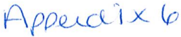 Appendix 6